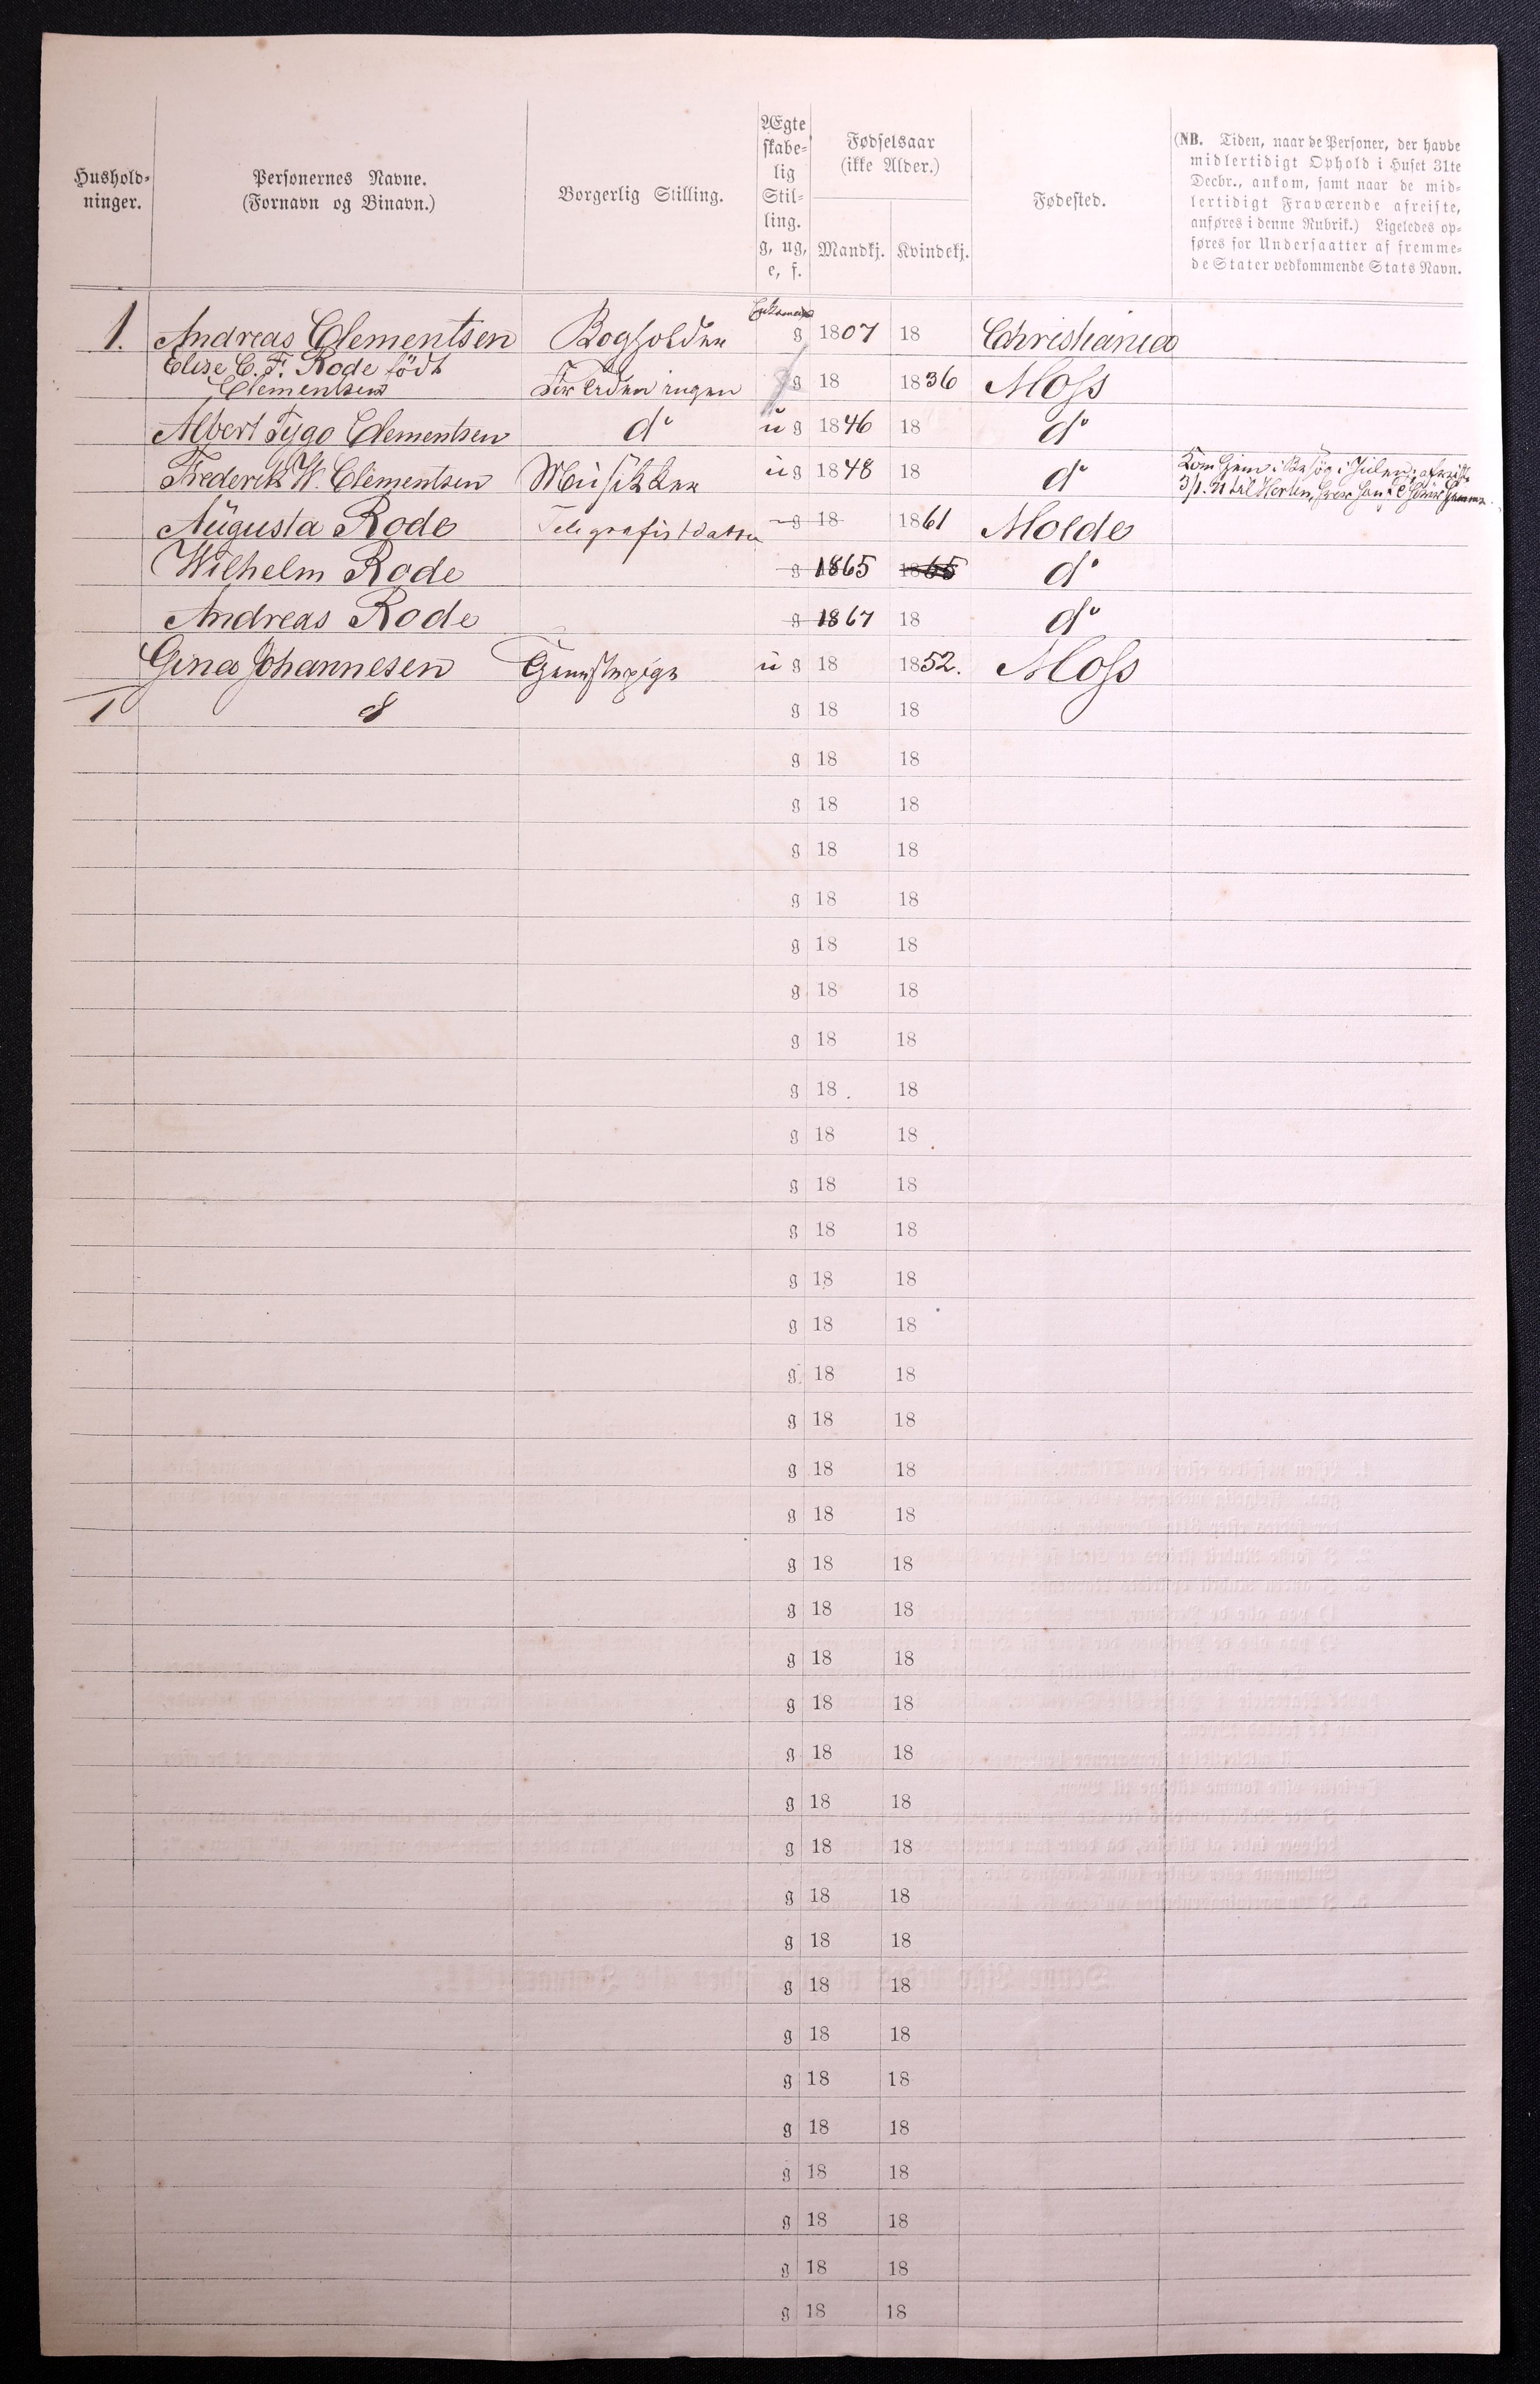 Hushold-
ninger.
Personernes Navne.
(Fornavn og Binavn.)
Borgerlig Stilling.
Ægte
skabe-
lig
Stil-
ling.
g, ug,
e, f.
Fødselsaar
(ikke Alder.)
Mandkj. Kvindekj.
Fødested.
(NB. Tiden, naar de Personer, der havde
midlertidigt Ophold i Huset 31te
Decbr., ankom, samt naar de mid-
lertidigt Fraværende afreiste,
anføres i denne Rubrik.) Ligeledes op-
føres for Undersaatter af fremme-
de Stater vedkommende Stats Navn.
1. Andreas Clementsen Bogholder g 1807 18 Christiania
Elise C. F. Rode födt
Clementsen For tiden ingen g 18 1836 Moss
Albert Tygo Clementsen do u g 1846 18 do
Frederik W. Clementsen Musikker u g 1848 18 do Kom hjem i Besøg i Julen, afreiste
3/1. 71 til Horten, hvor han e hører hjemme.
Augusta Rode Telegrafist datter g 18 1861 Molde
Wilhelm Rode g 1865 1865 do
Andreas Rode g 1867 18 do
Gina Johannesen Tjenestepige u g 18 1852. Moss
1 8 g 18 18
g 18 18
g 18 18
g 18 18
g 18 18
g 18 18
g 18 18
g 18 18
g 18 18
g 18 18
g 18 18
g 18 18
g 18 18
g 18 18
g 18 18
g 18 18
g 18 18
g 18 18
g 18 18
g 18 18
g 18 18
g 18 18
g 18 18
g 18 18
g 18 18
g 18 18
g 18 18
g 18 18
g 18 18
g 18 18
g 18 18
g 18 18
g 18 18
g 18 18
g 18 18